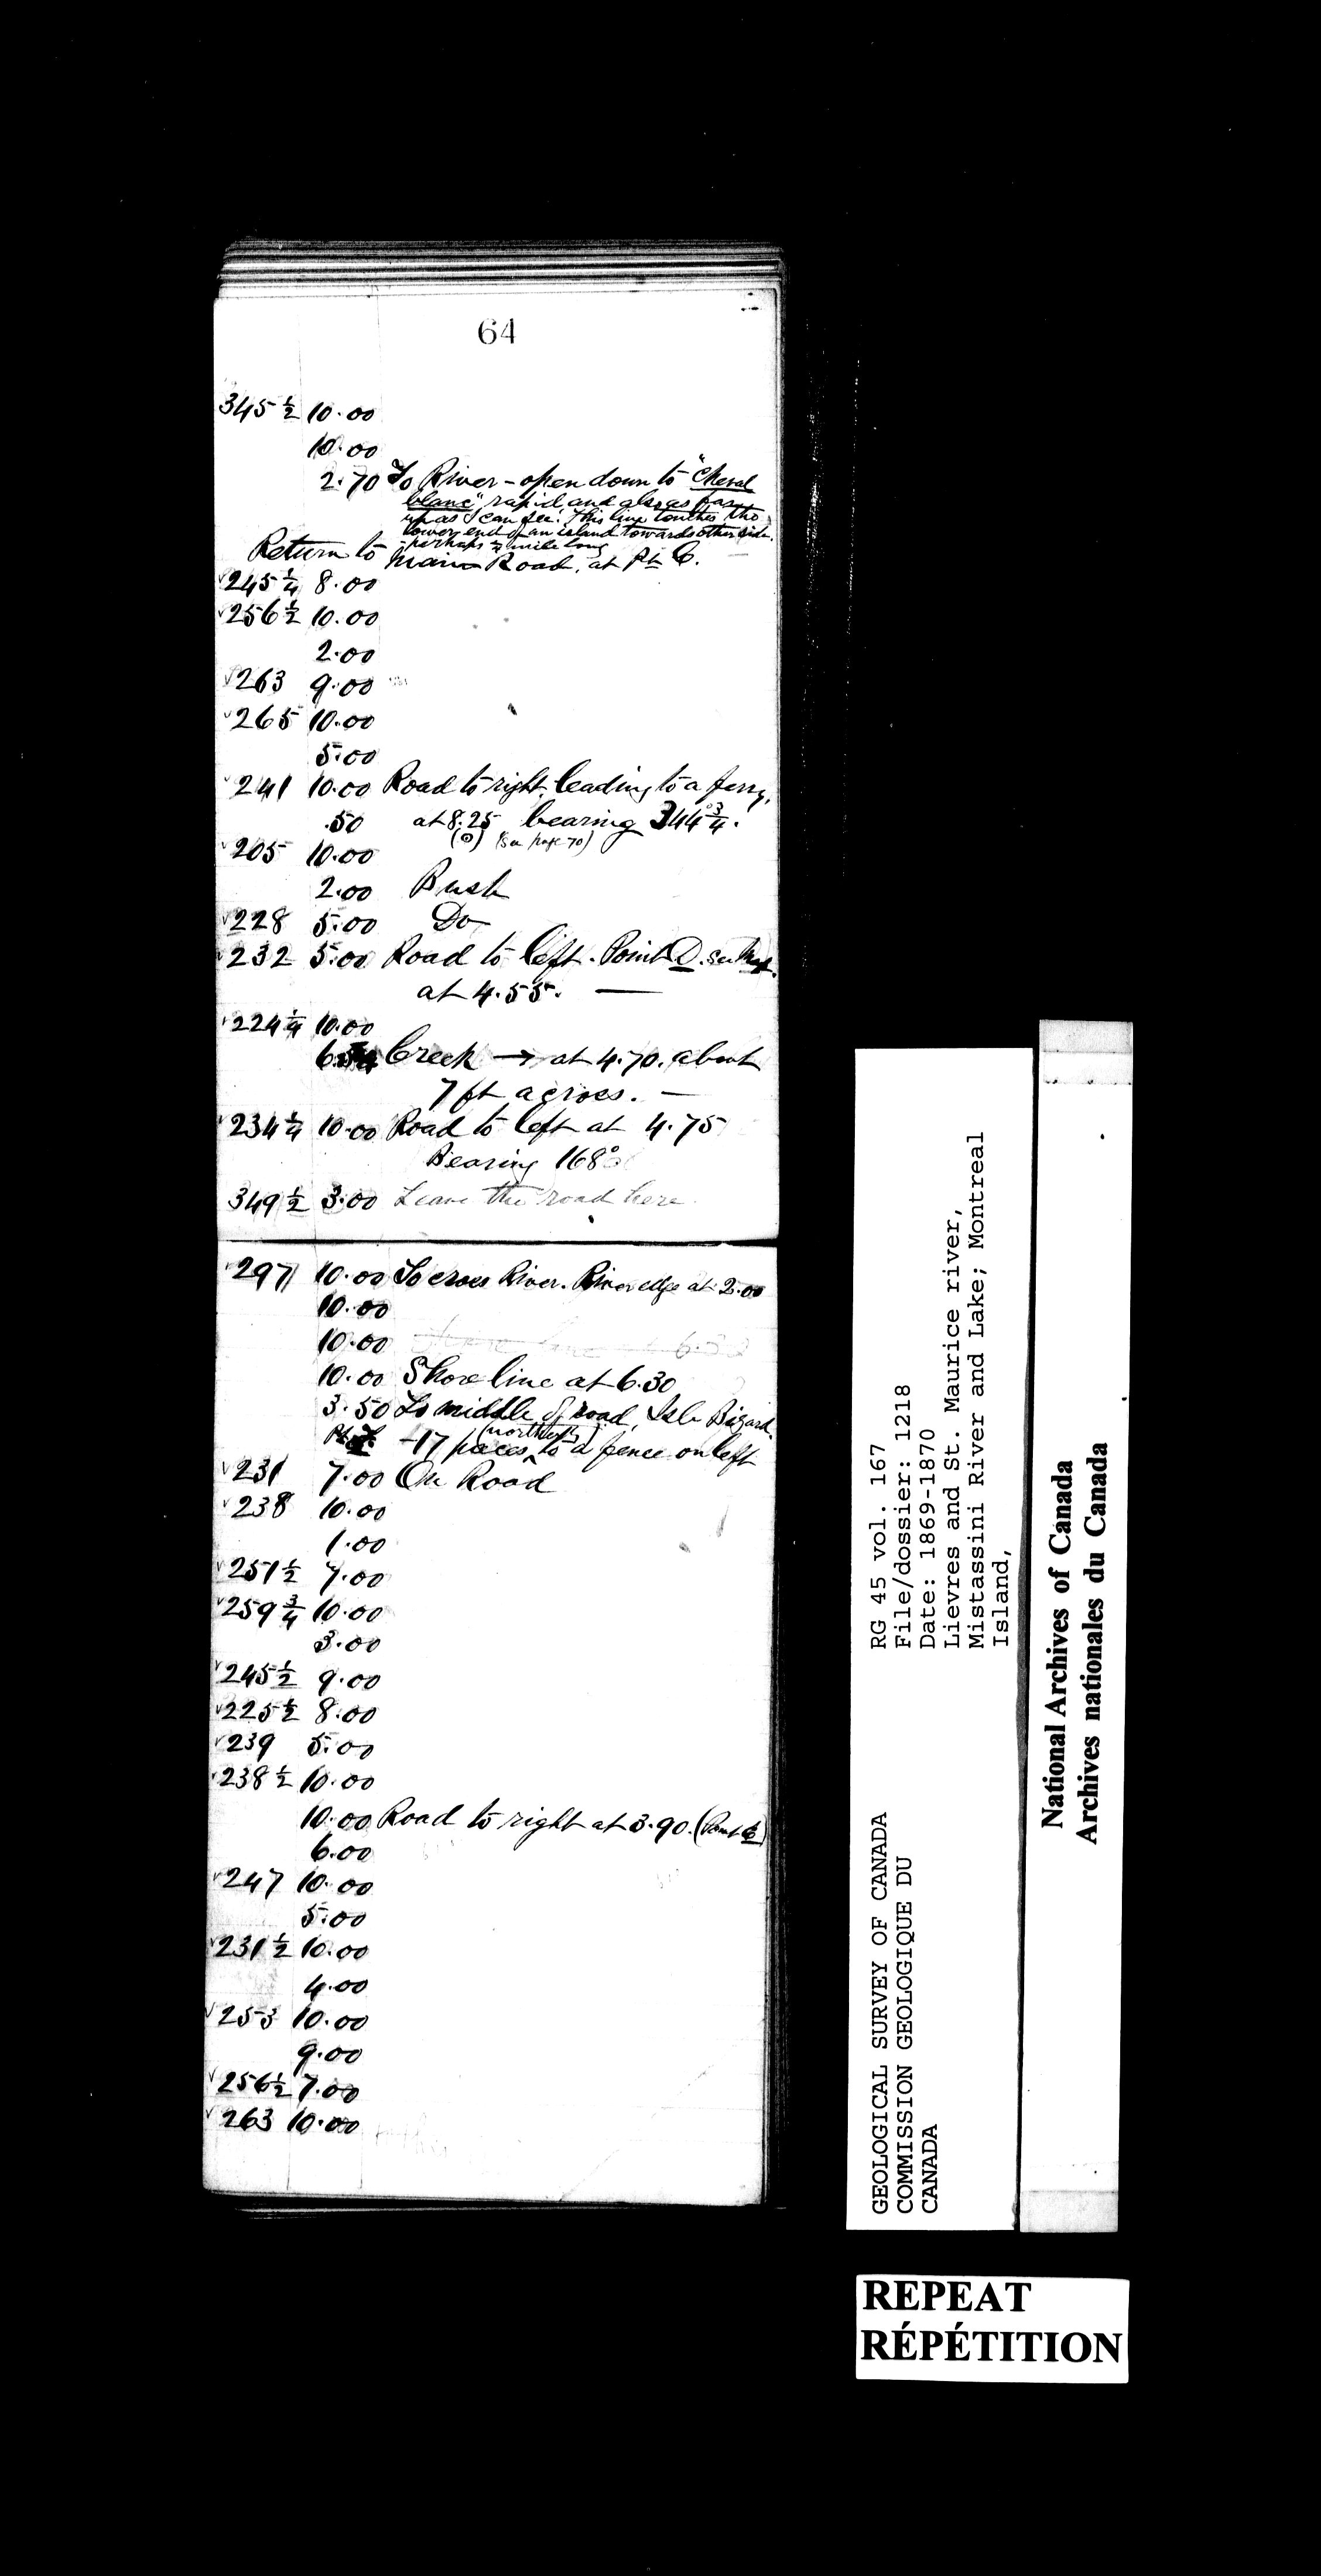 64
345 ½ 10.00
10.00
2.70 To River - open down to "Cheval
blanc" rapid and also as far
up as I can see. This line touches the
lower end of an island towards other side.
perhaps ½ mile long
Return to Main Road, at Pt C.
245 ¼ 8.00
256 ½ 10.00
2.00
263 9.00
265 10.00
5.00
241 10.00 Road to right, leading to a ferry,
.50 at 8.25 bearing 344° ¾.
(See page 70)
205 10.00
2.00 Bush
228 5.00 Do
232 5.00 Road to left. Point D. See Map.
at 4.55. —
224 ¼ 10.00
Creek → at 4.70. about
7 ft across. —
234 ¼ 10.00 Road to left at 4.75
Bearing 168°
349 ½ 3.00 Leave the road here
297 10.00 To cross River. River edge at 2.00
10.00
10.00
10.00 Shore line at 6.30
3.50 To middle of road, Isle Bizard.
-17 paces (northerly) to a fence on left
231 7.00 On Road
238 10.00
1.00
251 ½ 7.00
259 ¾ 10.00
3.00
245 ½ 9.00
225 ½ 8.00
239 5.00
238 ½ 10.00
10.00 Road to right at 3.90. (Point C)
6.00
247 10.00
5.00
231 ½ 10.00
4.00
253 10.00
9.00
256 ½ 7.00
263 10.00
GEOLOGICAL SURVEY OF CANADA
COMMISSION GEOLOGIQUE DU
CANADA
RG 45 vol. 167
File/dossier: 1218
Date: 1869-1870
Lievres and St. Maurice river,
Mistassini River and Lake; Montreal
Island,
National Archives of Canada
Archives nationales du Canada
REPEAT
RÉPÉTITION